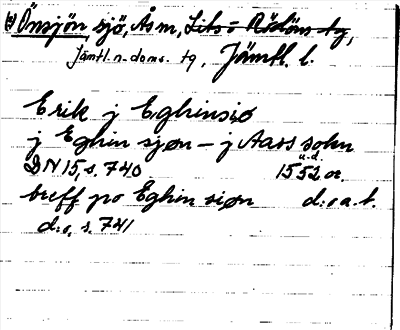 Önsjön sjö, Ås sn, Lits o Rödöns tg,
Jämtl. n. doms. tg, Jämtl. l.
Erik j Eghinsiø
j Eghin sjøn – j Aars sokn
u.d.
DN 15, s. 740 1552 or.
treff po Eghin siøn d:o a. t.
d:o, s. 741